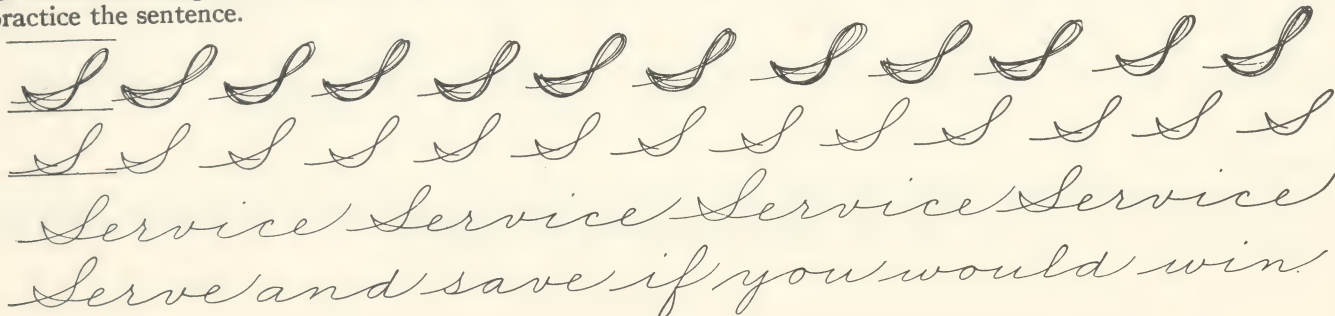 practice the sentence.
S S S S S S S S S S S S
S S S S S S S S S S S S S
Service Service Service Service
Serve and save if you would win.